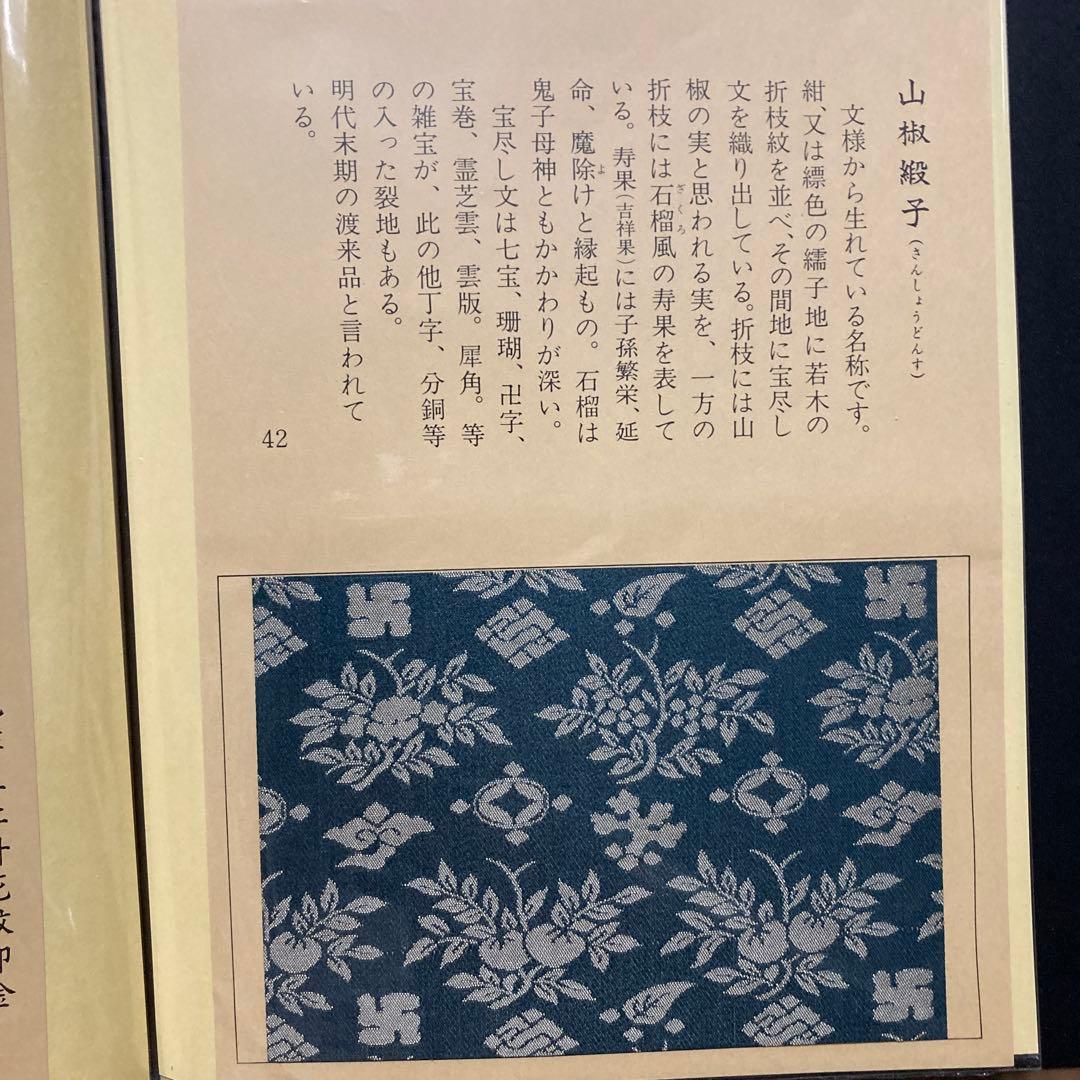 山椒緞子(さんしょうどんす)
文様から生れている名称です。
紺、又は縹色の繻子地に若木の
折枝紋を並べ、その間地に宝尽し
文を織り出している。折枝には山
椒の実と思われる実を、一方の
折枝には石榴風の寿果を表して
ざくろ
いる。寿果(吉祥果)には子孫繁栄、延
命、魔除けと縁起もの。石榴は
よ
鬼子母神ともかかわりが深い。
宝尽し文は七宝、珊瑚、卍字、
宝巻、霊芝雲、雲版。犀角。等
の雑宝が、此の他丁字、分銅等
の入った裂地もある。
明代末期の渡来品と言われて
いる。
42